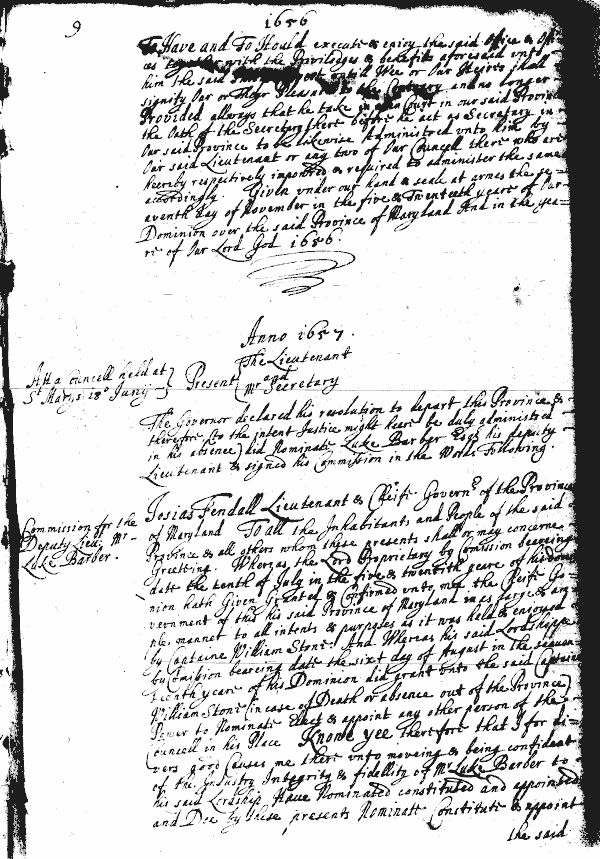 9
1656
To Have and To Hould execute & enjoy the said Office &
as together with the Priviledges & benefits aforesaid unto
him the said untill Wee or Our Heires shall
signify Our or Their Pleasure to the Contrary and no longer
Provided allways that he take in open Court in our said Province
the Oath of the Secretary there before he act as Secretary in
Our said Province to be likewise Administred unto him by
Our said Lieutenant or any two of Our Councell there who are
heereby respectively impowred & required to administer the same
accordingly. Given under our hand & seale at armes the se-
aventh day of November in the five & Twentieth yeare of Our
Dominion over the said Province of Maryland And in the yea-
re of Our Lord God 1656.
Anno 1657.
Att a Councell held at
St Marys 18º Junij
Present
The Lieutenant
and
mr Secretary
The Governor declared his resolution to depart this Province &
therefore (to the intent Justice might heere be duly administred
in his absence) did Nominate Luke Barber Esqr his deputy
Lieutenant & signed his Commission in the Words Following.
Commission for the
Deputy Lieu: Mr
Luke Barber.
Josias Fendall Lieutenant & Cheife Governr of the Province
of Maryland To all the Inhabitants and People of the said
Province & all others whom these presents shall or may concerne
Greetting. Whereas the Lord Proprietary by Comission beareing
date the tenth of July in the five & twentieth yeare of his domi
nion hath Given Granted & Confirmed unto mee the Cheife Go
vernment of this his said Province of Maryland in as large & am
ple mannet to all intents & purposes as it was held & enjoyed
by Captaine William Stone: And Whereas his said Lordshippe
by Comission beareing date the sixt day of August in the
teenth yeare of his Dominion did grant unto the said Captaine
William Stone (in case of Death or absence out of the Province)
Power to Nominate Elect & appoint any other person of the
Councell in his Place Knowe yee therefore that I for di-
vers good Causes me there unto moveing & being confident
of the Industry Integrity & fidellity of Mr Luke Barber to
his said Lordship, Have Nominated constituted and appointed
and Doe by these presents Nominate Constitute & appoint
the said